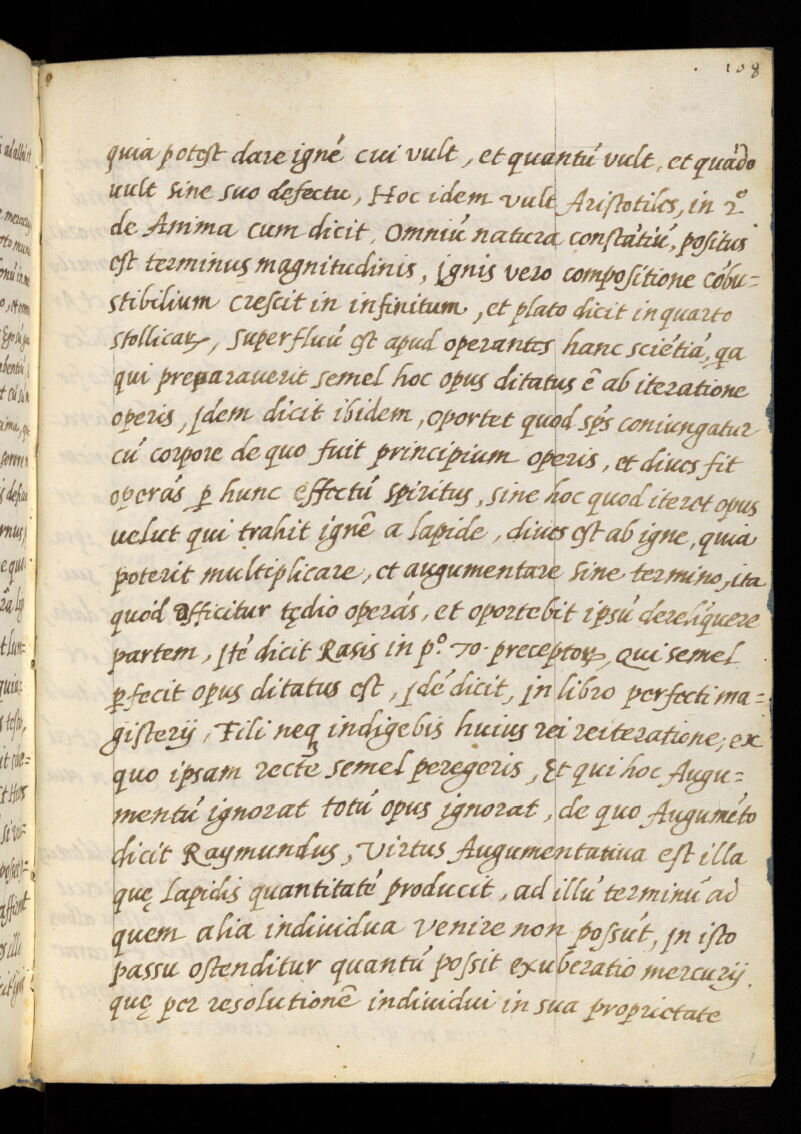 108
quia potest dare igné cui vult, et quantú vult, et quádo
uult sine suo defectu, Hoc idem vult Aristotiles, in 2.º
de Anima cum dicit, Omniú natura constátiú, positus
est terminus magnitudinis, ignis vero compositione cóbu=
stibilium crescit in infinitum, et plato dicit in quarto
stollicaꝝ, superfluú est apud operantes hanc sciétiá, qa
qui preparauerit semel hoc opus ditatus ẽ ab iteratione
operis, jdem dicit ibidem, oportet quod sp̃s coniungatur
cú corpore de quo fuit principium operis, et diues fit
operás ꝑ hunc effectú spiritus, sine hoc quod iteret opus
uelut qui trahit ignẽ a lapide, diues est ab igne, quia
poterit multiplicare, et augumentare sine termino, ita
quod afficitur tędio operás, et oportebit ipsú derelíquere
partem, jté dicit Rasis in pº. 70. preceptoꝝ, Qui semel
ꝑfecit opus ditatus est, jdé dicit, in libro perfecti ma=
gisterij, Fili neq indigebis huius rei reiteratione, ex
quo ipsam rectẽ semel peregeris, Et qui hoc Augu=
mentú ignorat totú opus ignorat, de quo Augumẽto
dicit Raymundus, Virtus Augumentatiua est illa
quę lapidis quantitaté producit, ad illú terminú ad
quem alia indiuidua venire non possút, in isto
passu ostenditur quantú possit exuberatio mercurij
quę per resolutionẽ indiuidui in sua proprietate